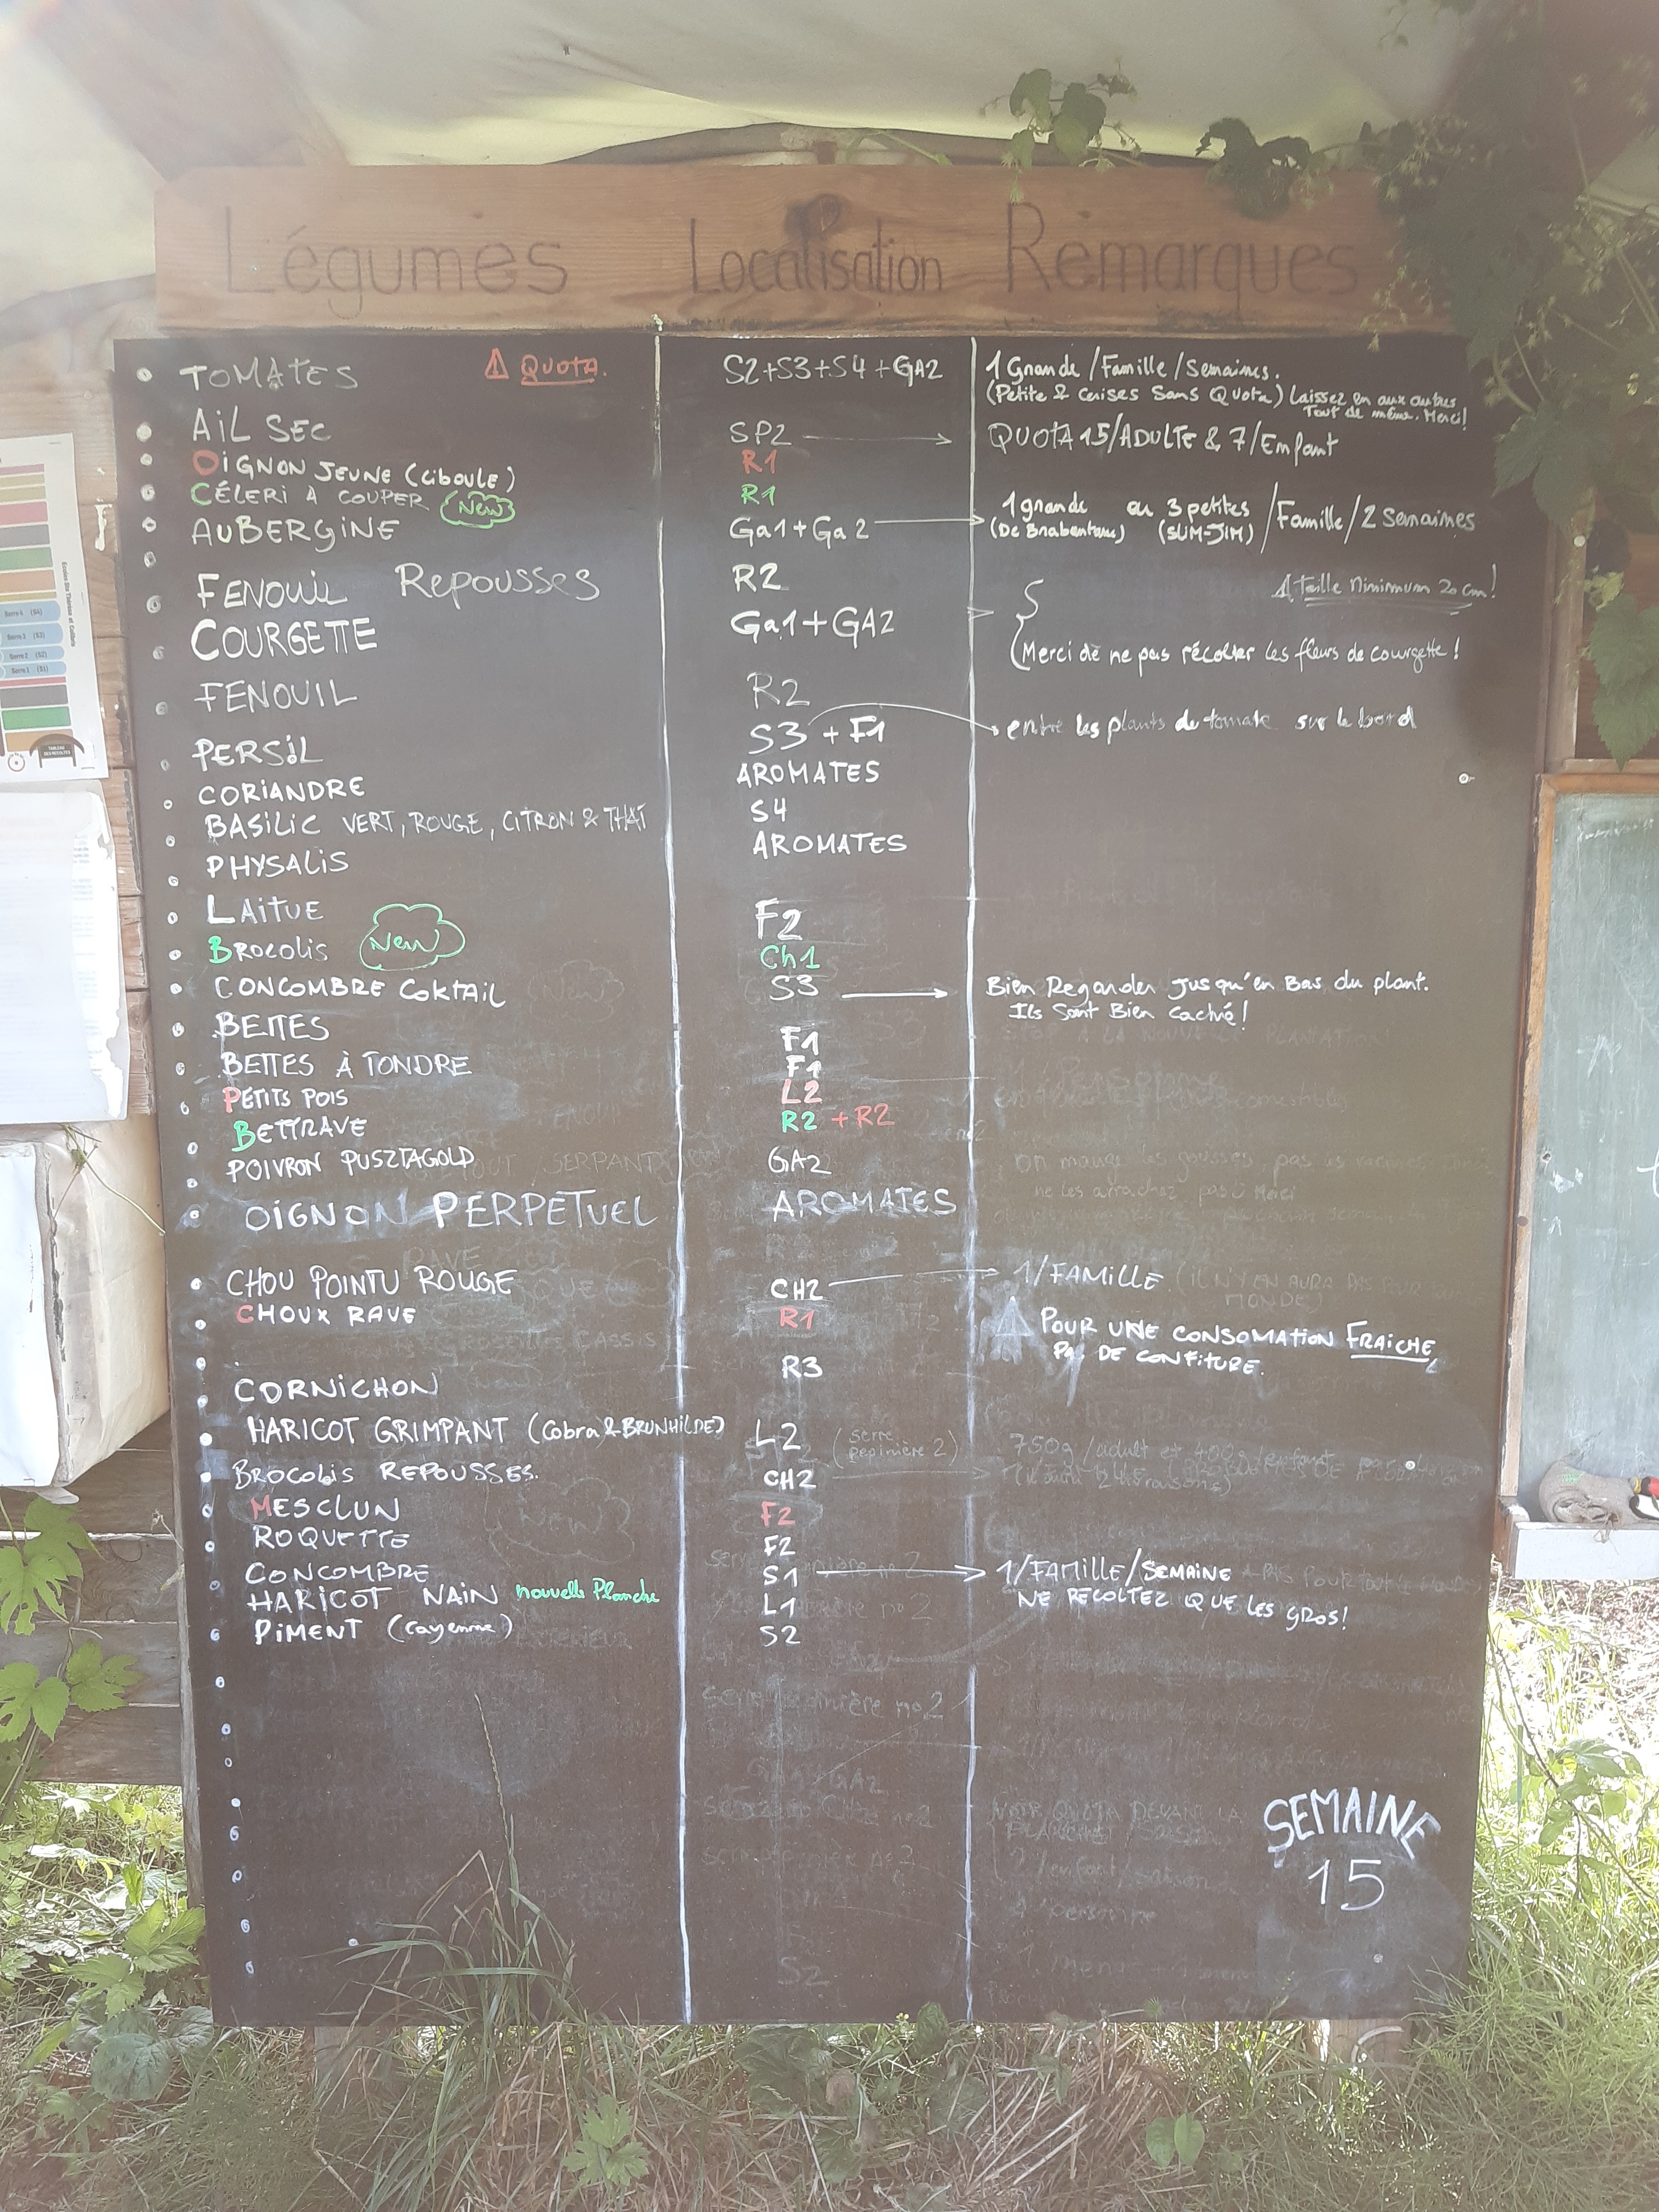 Légumes Localisation Remarques
TOMATES ⚠ QUOTA. S2+S3+S4+GA2 1 Grande/Famille/Semaines.
(Petite & Cerises Sans Quota) Laissez en aux autres
Tout de même. Merci!
AiL SEC SP2 QUOTA 15/ADULTE & 7/Enfant
OiGNON JEUNE (ciboule) R1
CÉLERI A COUPER New R1
AUBERGINE Ga1+Ga2 1 grande ou 3 petites /Famille/2 Semaines
(SLIM-JIM)
FENOUIL Repousses R2 Taille Minimum 20 cm!
COURGETTE Ga1+GA2
Merci de ne pas récolter les fleurs de courgette!
FENOUIL R2
PERSIL S3 + F1 entre les plants de tomate sur le bord
CORIANDRE AROMATES
BASILIC VERT, ROUGE, CITRON & THAÏ S4
PHYSALIS AROMATES
LAITUE F2
BROCOLIS New Ch1
CONCOMBRE COKTAIL S3 Bien Regarder Jusqu'en Bas du plant.
Ils Sont Bien caché!
BETTES F1
BETTES À TONDRE F1
PETITS POIS L2
BETTRAVE R2 + R2
POIVRON PUSZTAGOLD GA2
OIGNON PERPETUEL AROMATES
CHOU POINTU ROUGE CH2 1/FAMILLE
CHOUX RAVE R1 POUR UNE CONSOMATION FRAICHE,
PAS DE CONFITURE.
CORNICHON R3
HARICOT GRIMPANT (Cobra & BRUNHILDE) L2 (serre
pepinière 2)
BROCOLIS REPOUSSES. CH2
MESCLUN F2
ROQUETTE F2
CONCOMBRE S1 1/FAMILLE/SEMAINE
HARICOT NAIN nouvelle Planche L1 NE RECOLTEZ QUE LES GROS!
PIMENT (Cayenne) S2
SEMAINE
15